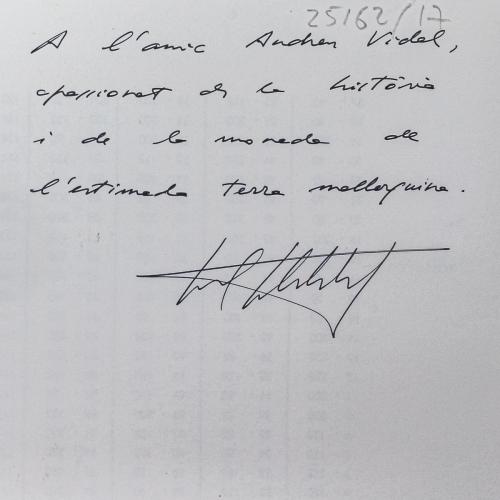 25162/17
A l'amic Andreu Vidal,
apassionat de la història
i de la moneda de
l'estimada terra mallorquina.